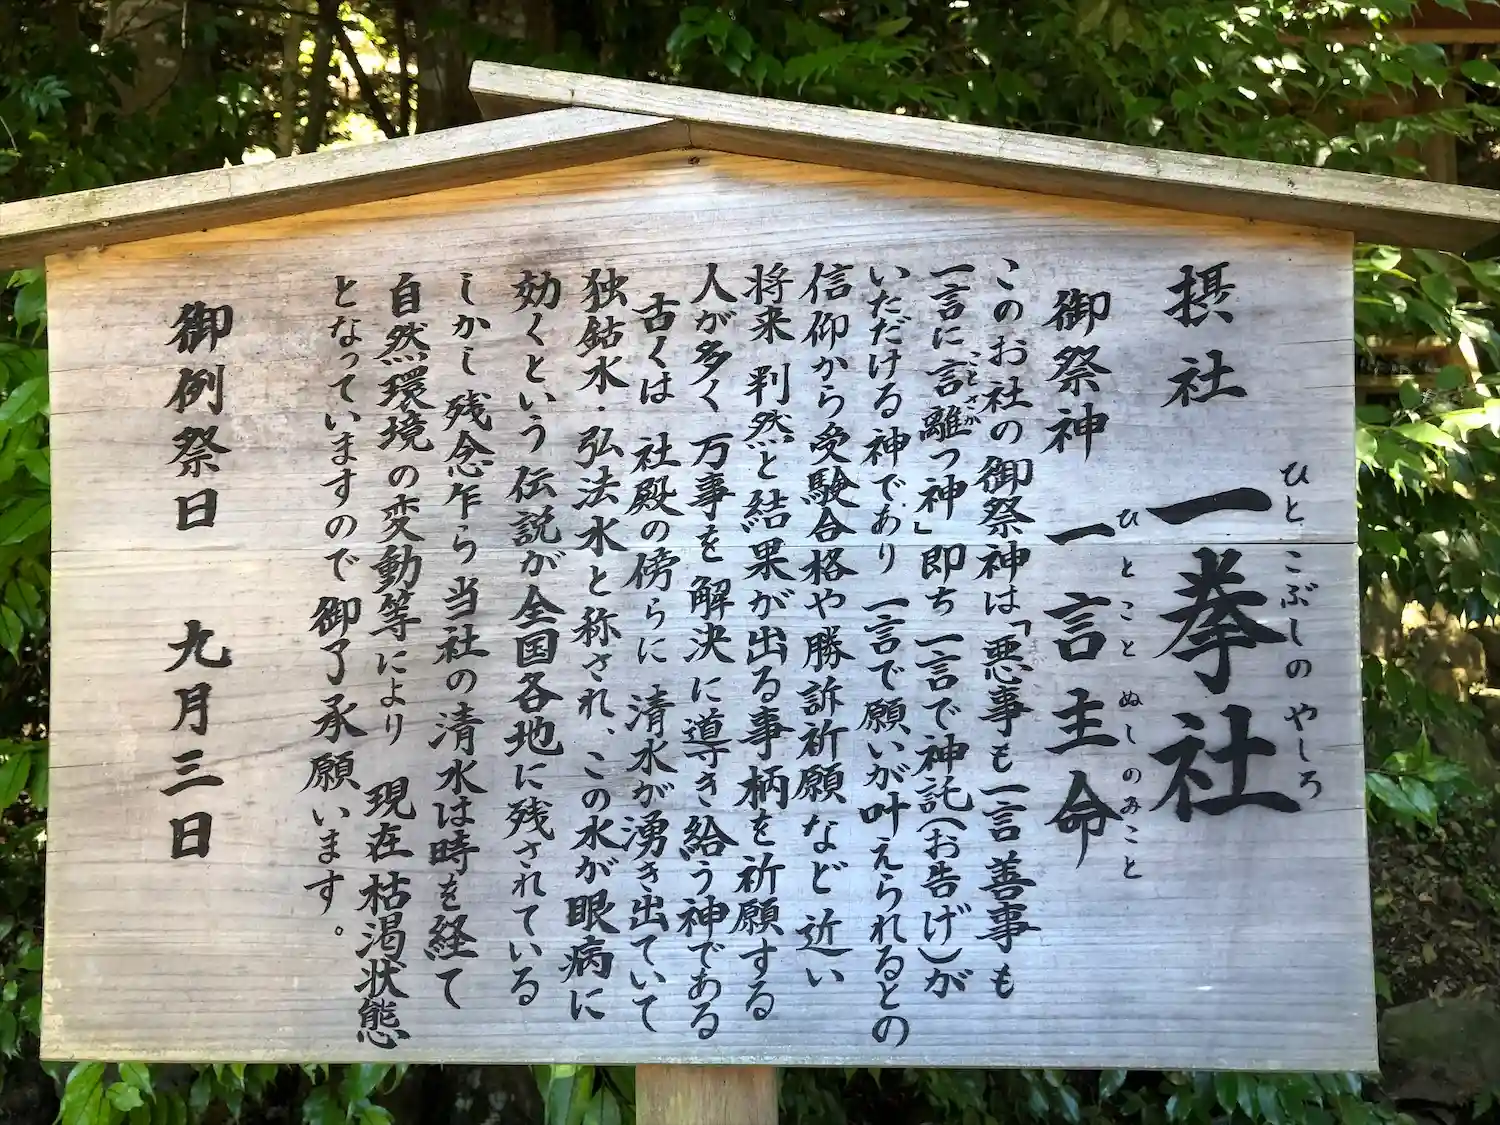 摂社 一拳社
ひとこぶしのやしろ
御祭神 一言主命
ひとことぬしのみこと
このお社の御祭神は「悪事も一言善事も
一言に言離つ神」即ち 一言で神託(お告げ)が
ことさか
いただける神であり 一言で願いが叶えられるとの
信仰から受験合格や勝訴祈願など 近い
将来 判然と結果が出る事柄を祈願する
人が多く 万事を解決に導き給う神である
古くは 社殿の傍らに 清水が湧き出ていて
独鈷水・弘法水と称され、この水が眼病に
効くという伝説が全国各地に残されている
しかし 残念乍ら 当社の清水は時を経て
自然環境の変動等により 現在枯渇状態
となっていますので御了承願います。
御例祭日 九月三日